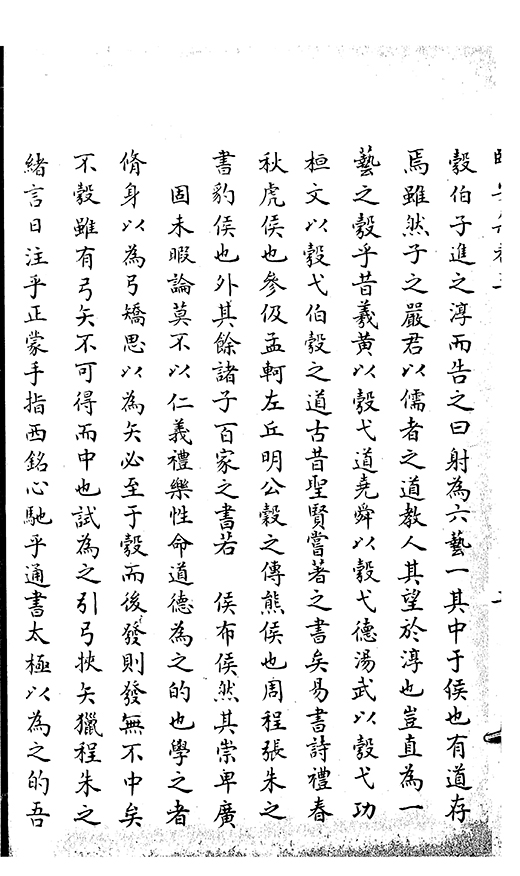 彀伯子進之淳而告之曰射為六藝一其中于侯也有道存
焉雖然子之嚴君以儒者之道教人其望於淳也豈直為一
藝之彀乎昔羲黄以彀弋道堯舜以彀弋德湯武以彀弋功
桓文以彀弋伯彀之道古昔聖賢嘗著之書矣易書詩禮春
秋虎侯也參伋孟軻左丘明公穀之傳熊侯也周程張朱之
書豹侯也外其餘諸子百家之書若　侯布侯然其崇卑廣
固未暇論莫不以仁義禮樂性命道德為之的也學之者
脩身以為弓矯思以為矢必至于彀而後發則發無不中矣
不彀雖有弓矢不可得而中也試為之引弓挾矢獵程朱之
緒言日注乎正蒙手指西銘心馳乎通書太極以為之的吾